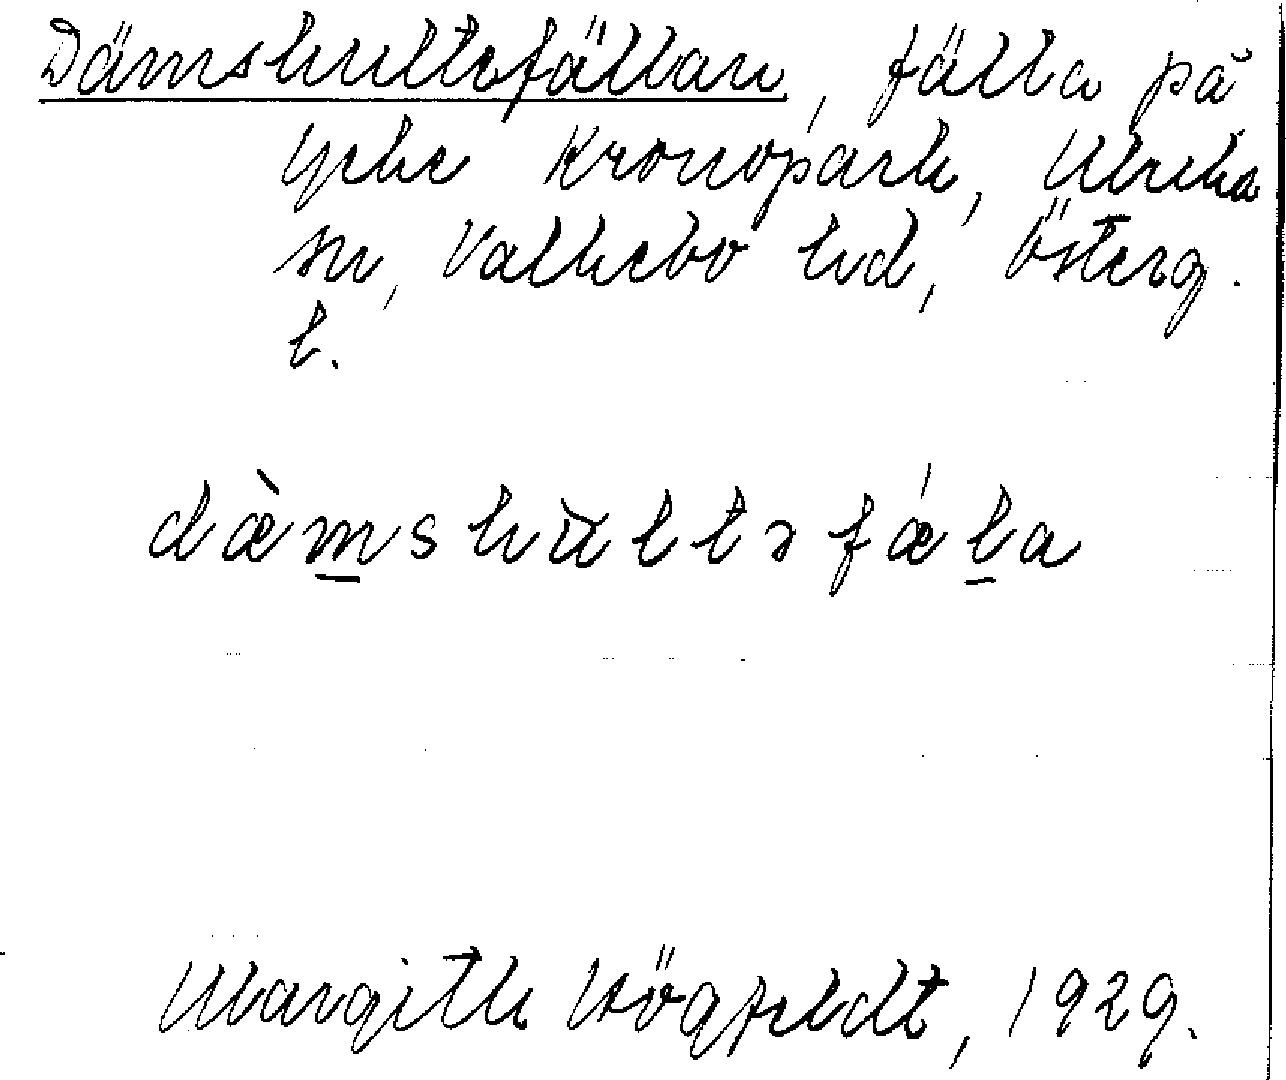 Dämshultsfällan, fälla på
Yche Kronopark, Ulrika
sn, Valkebo hd, Österg.
l.
dæ̀m̲shu̇ltsfǽl̲a
Margith Högfeldt, 1929.